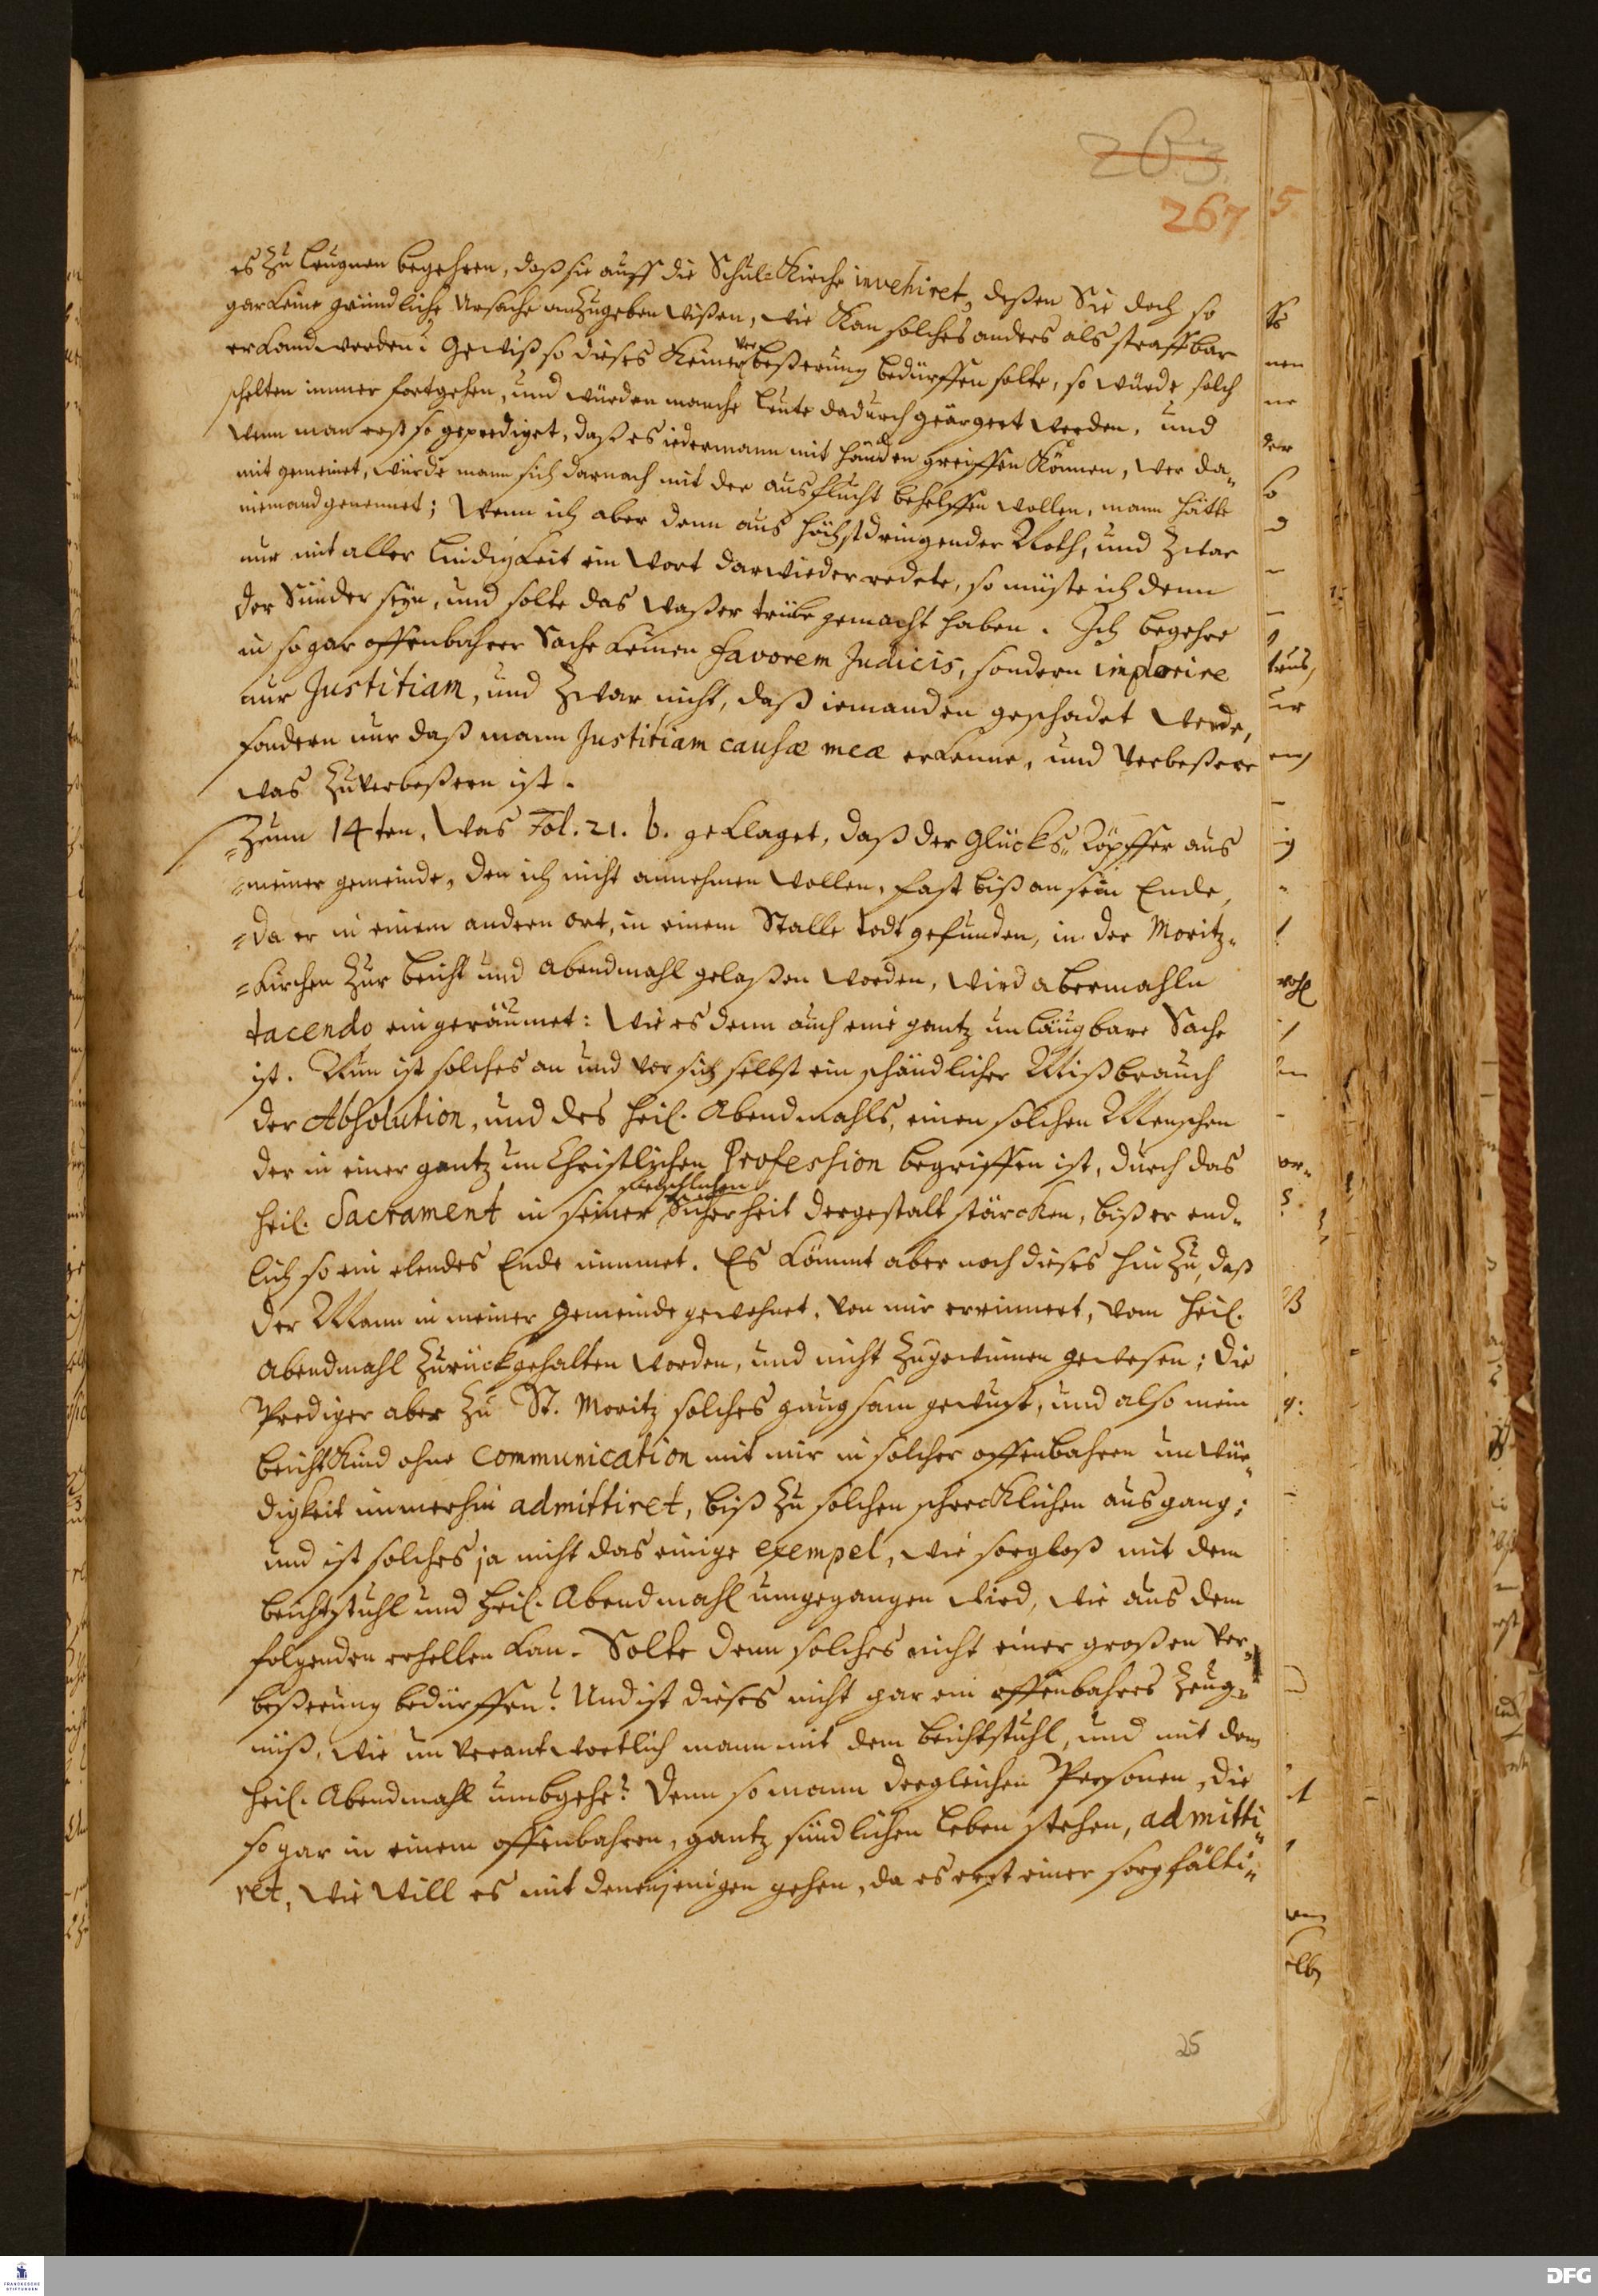 263
267
es zu leugnen begehren, daß sie auff die Schul-Kirche invehiret, deßen Sie doch so
gar keine gründliche Ursache anzugeben wißen, wie kan solches anders als straffbar
erkand werden? Gewiß so dieses keiner verbeßerung bedürffen solte, so würde solch
schelten immer fortgehen, und würden manche Leute dadurch geärgert werden, und
wenn man erst so geprediget, daß es iedermann mit händen greiffen können, wer da-
mit gemeinet, würde mann sich darnach mit der ausflucht behelffen wollen, mann hätte
niemand genennet; Wenn ich aber denn aus höchstdringender Noth, und zwar
nur mit aller lindigkeit ein Wort darwieder redete, so müste ich denn
der Sünder seyn, und solte das waßer trübe gemacht haben. Ich begehre
in so gar offenbahrer Sache keinen favorem Judicis, sondern implorire
nur Justitiam, und zwar nicht, daß iemanden geschadet werde,
sondern nur daß mann Justitiam causæ meæ erkenne, und verbeßere
was zu verbeßern ist.
Zum 14ten, Was Fol. 21. b. geklaget, daß der Glücks-Töpffer aus
meiner gemeinde, den ich nicht annehmen wollen, fast biß an sein Ende,
da er in einem andern ort, in einem Stalle todt gefunden, in der Moritz-
Kirchen zur beicht und abendmahl gelaßen worden, wird abermahln
tacendo eingeräumet: wie es denn auch eine gantz unläugbare Sache
ist. Nun ist solches an und vor sich selbst ein schändlicher Mißbrauch
der Absolution, und des heil. Abendmahls, einen solchen Menschen
der in einer gantz unChristlichen Profession begriffen ist, durch das
heil. Sacrament in seiner fleischlichen Sicherheit dergestalt stärcken, biß er end-
lich so ein elendes Ende nimmet. Es kömmt aber noch dieses hinzu, daß
der Mann in meiner Gemeinde gewohnet, von mir erinnert, vom heil.
abendmahl zurückgehalten worden, und nicht zugewinnen gewesen; die
Prediger aber zu St. Moritz solches gnugsam gewust, und also mein
beichtkind ohne communication mit mir in solcher offenbahren unwür-
digkeit immerhin admittiret, biß zu solchen schrecklichen ausgang;
und ist solches ja nicht das einige exempel, wie sorgloß mit dem
beichtstuhl und heil. Abendmahl umgegangen wird, wie aus dem
folgenden erhellen kan. Solte denn solches nicht einer großen ver-
beßerung bedürffen? Und ist dieses nicht gar ein offenbahres Zeug-
niß, wie unverantwortlich mann mit dem beichtstuhl, und mit dem
heil. Abendmahl umbgehe? Denn so mann dergleichen Personen, die
so gar in einem offenbahren, gantz sündlichen Leben stehen, admitti-
ret, wie will es mit denenjenigen gehen, da es erst einer sorgfälti-
25
FRANCKESCHE STIFTUNGEN
DFG